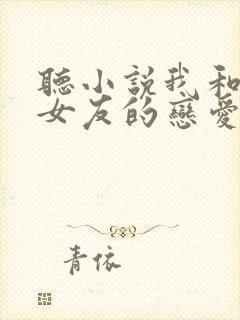 聽小説我和
女友的戀愛
青依